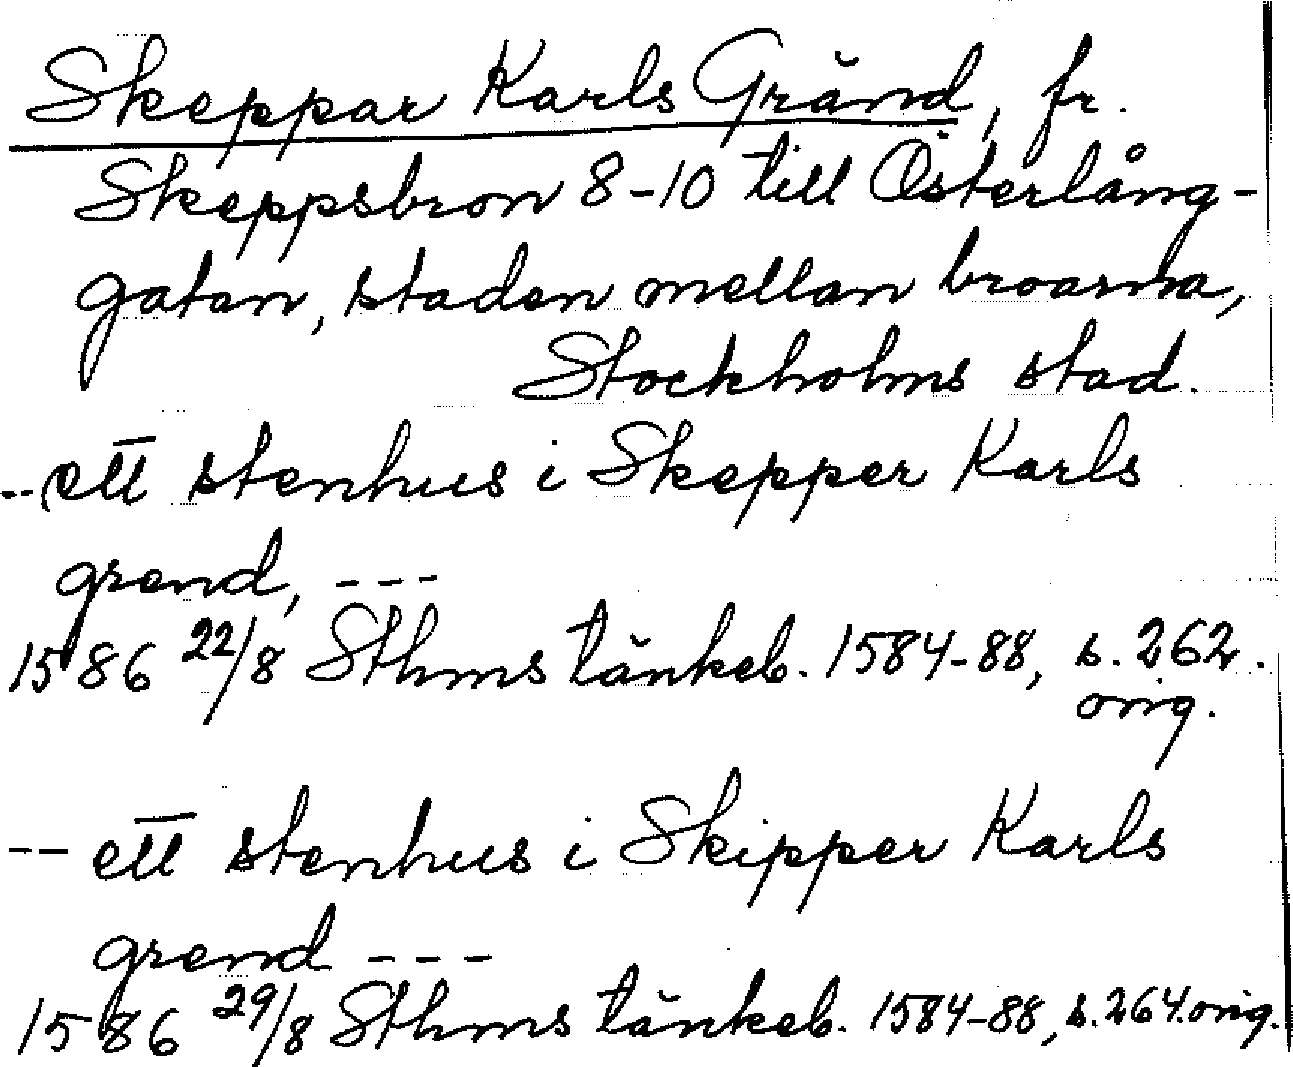 Skeppar Karls Gränd, fr.
Skeppsbron 8-10 till Österlång-
gatan, staden mellan broarna,
Stockholms stad.
--(ett stenhus i Skepper Karls
grend, ---
1586 22/8 Sthms tänkeb. 1584-88, s. 262.
orig.
-- ett stenhus i Skipper Karls
grend ---
1586 29/8 Sthms tänkeb. 1584-88, s. 264. orig.